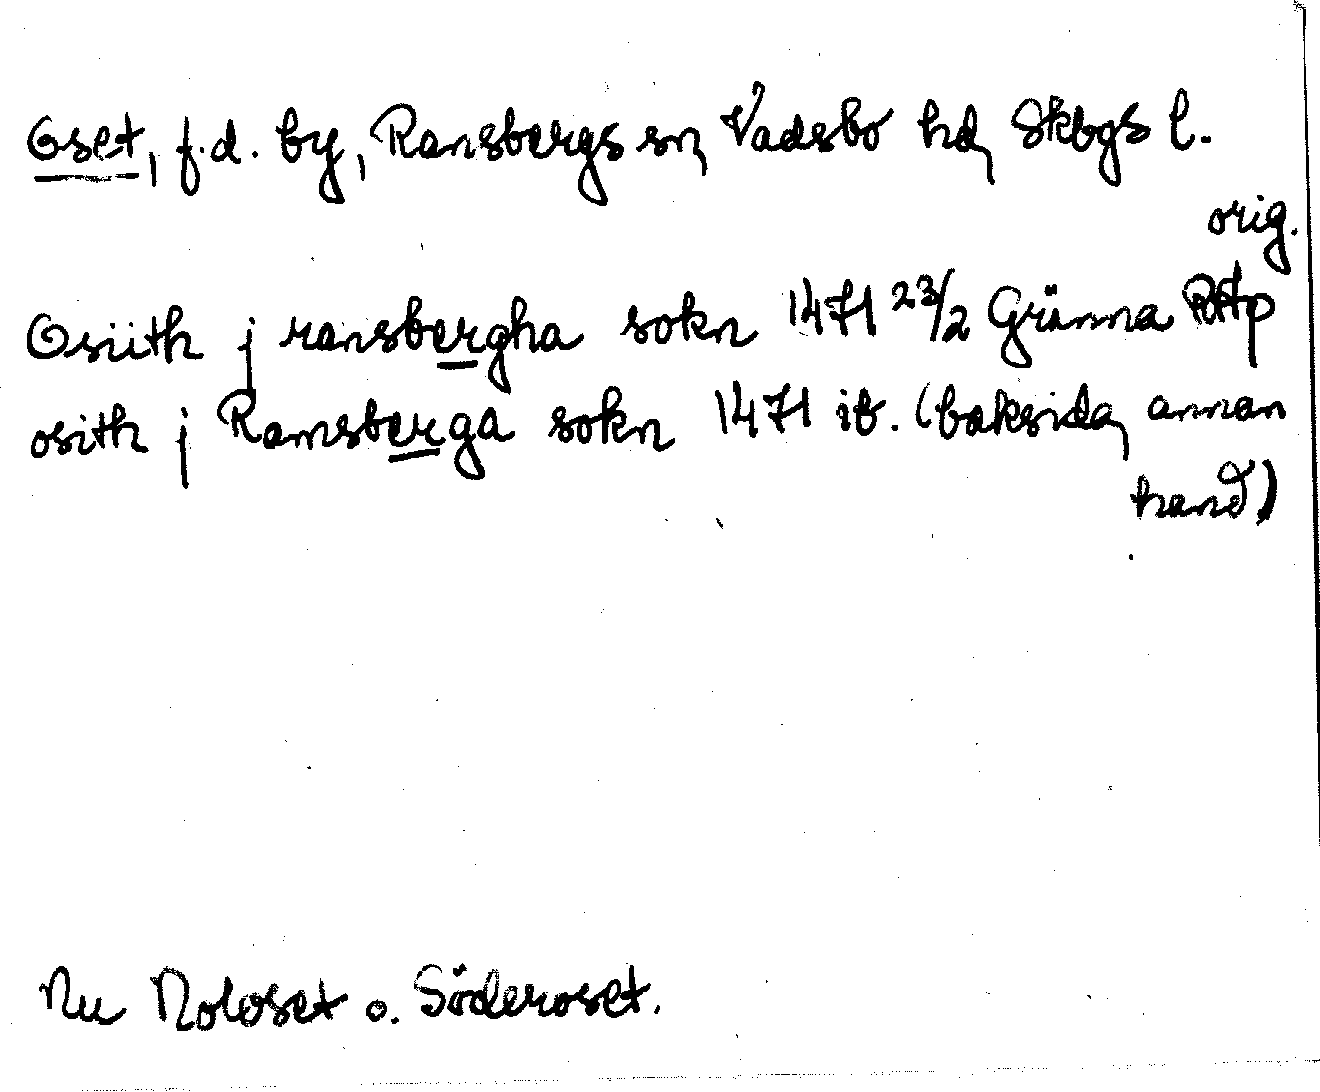 Oset, f.d. by, Ransbergs sn, Vadsbo hd, Skbgs l.
orig.
Osiith j ransbergha sokn 1471 23/2 Gränna RAp
osith j Ramsberga sokn 1471 ib. (baksida, annan
hand)
Nu Noloset o. Söderoset.